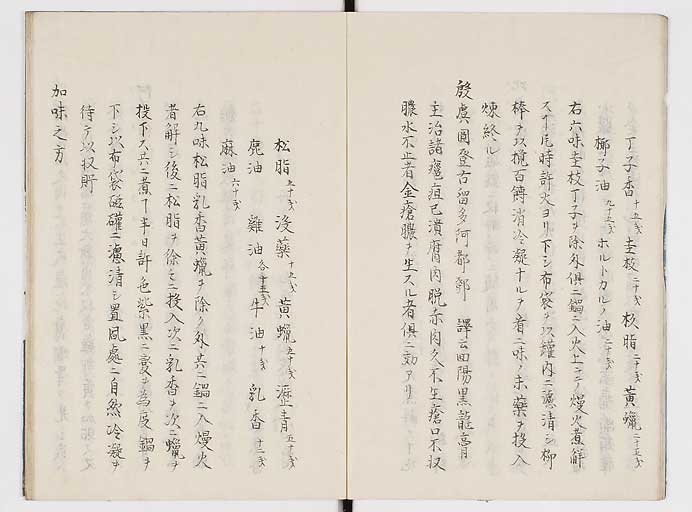 丁子香十五戔 圭枝二十戔 松脂二十戔 黄蠟二十五戔
椰子油九十五戔 ホルトカルノ油二十戔
右六味圭枝丁子ヲ除外俱ニ鍋ニ入火上ニテ熳火煮解
スヿ凡时許火ヨリ下シ布袋ヲ以鑵内ニ濾清シ柳
棒ヲ以攪百傳消冷凝ナルヲ者二味ノ末薬ヲ投入
煉終ル
殷虞圓登古留多阿郡鄧 譯云四陽黒龍膏
主治諸瘡疽已潰腐肉脱赤肉久不生瘡口不収
膿水不止者金瘡膿ヲ生スル者俱ニ効アリ
松脂五十戔 没藥十五戔 黄蠟五十戔 瀝青五十戔
鹿油 雞油各十五戔 牛油十戔 乳香十二戔
麻油六十戔
右九味松脂乳香黄蠟ヲ除ク外共ニ鍋ニ入熳火
者解シ後ニ松脂ヲ徐々ニ投入次ニ乳香ヲ次ニ蠟ヲ
投下ス共ニ煮ヿ半日許色紫黒ニ変ヲ為度鍋ヲ
下シ以布袋磁礶ニ濾清シ置風處ニ自然冷凝ヲ
待テ以収貯
加味之方